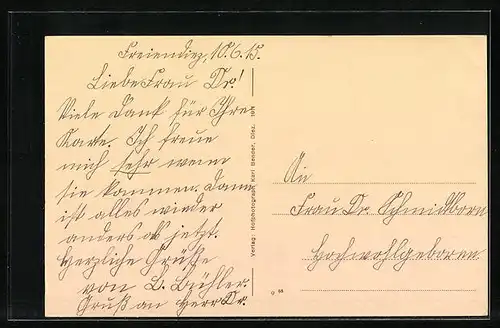 Freiendiez, 10.6.15.
Liebe Frau Dr.!
Viele Dank für Ihre
Karte. Ich freue
mich sehr wenn
sie kommen. Dann
ist alles wieder
anders als jetzt.
Herzliche Grüße
von L. Bühler.
Gruß an Herr Dr.
Verlag: Hofphotograph Karl Bender, Diez.
An
Frau Dr. Schmidtborn
Hochwohlgeboren.